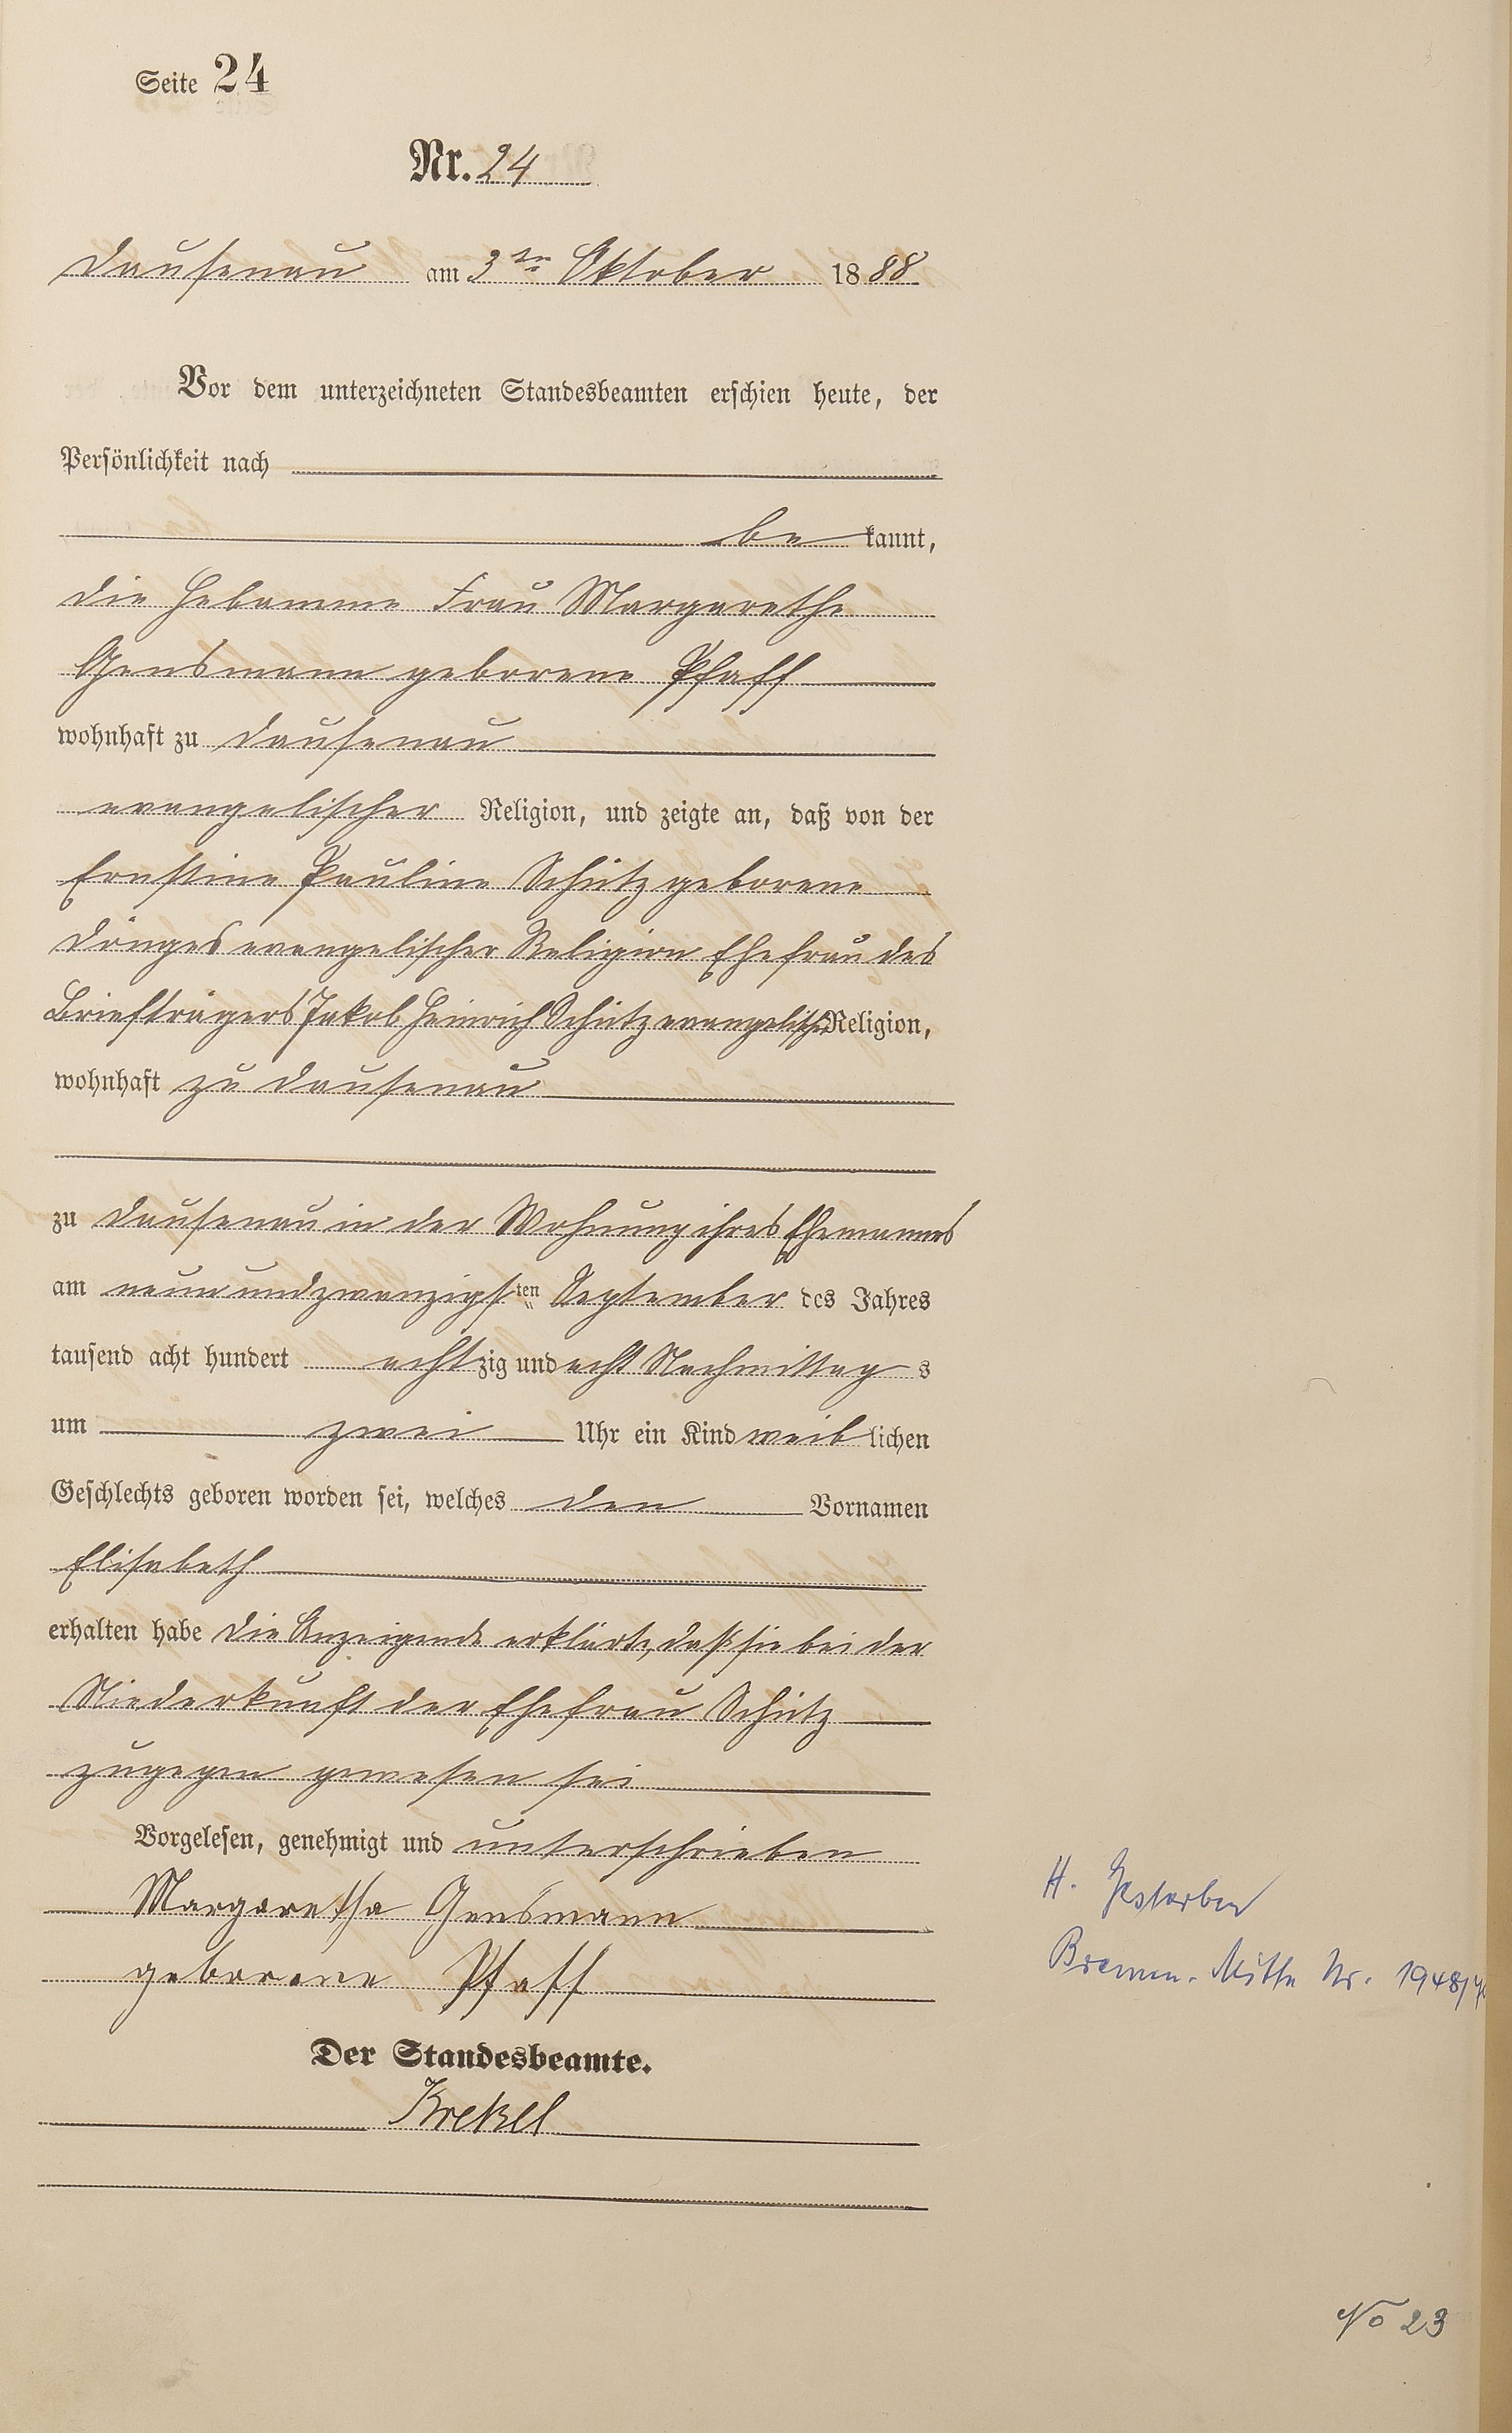 Seite 24
Nr. 24
Dausenau am 3ten Oktober 1888
Vor dem unterzeichneten Standesbeamten erschien heute, der
Persönlichkeit nach
be kannt,
die Hebamme Frau Margarethe
Gensmann geborene Pfaff
wohnhaft zu Dausenau
evangelischer Religion, und zeigte an, daß von der
Ernstine Pauline Schütz geborene
Dönges evangelischer Religion Ehefrau des
Briefträgers Jakob Heinrich Schütz evangelischer Religion,
wohnhaft zu Dausenau
zu Dausenau in der Wohnung ihres Ehemannes
am neunundzwanzigsten September des Jahres
tausend acht hundert achtzig und acht Nachmittag s
um zwei Uhr ein Kind weiblichen
Geschlechts geboren worden sei, welches den Vornamen
Elisabeth
erhalten habe die Anzeigende erklärte, daß sie bei der
Niederkunft der Ehefrau Schütz
zugegen gewesen sei
Vorgelesen, genehmigt und unterschrieben
Margaretha Gensmann
geborene Pfaff
Der Standesbeamte.
Krekel
H. Gestorben
Bremen-Mitte Nr. 1948/
No 23